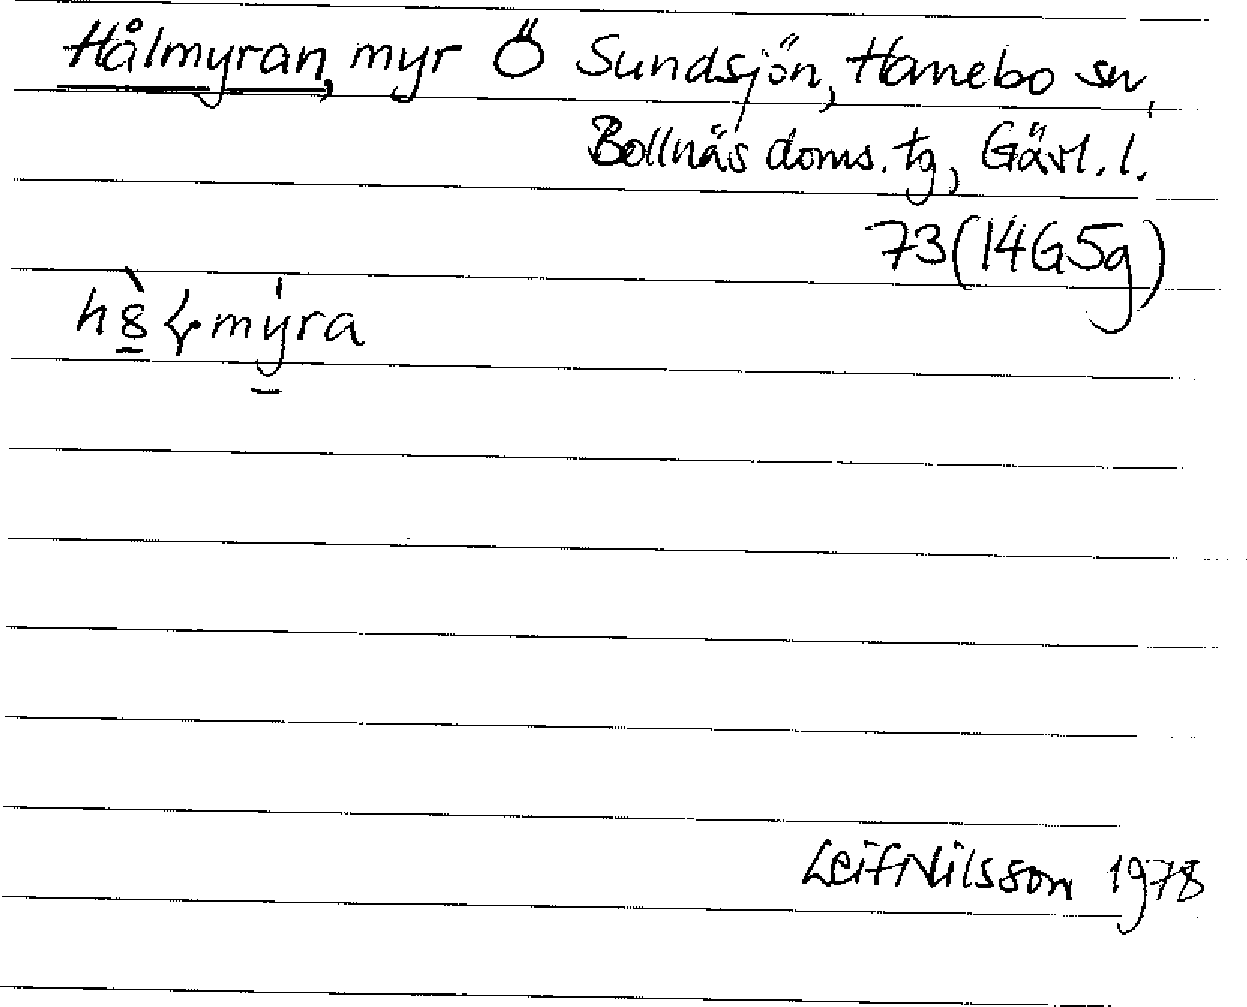 Hålmyran, myr Ö Sundsjön, Hanebo sn,
Bollnäs doms. tg, Gävl. l.
73 (14G5g)
myra
Leif Nilsson 1978